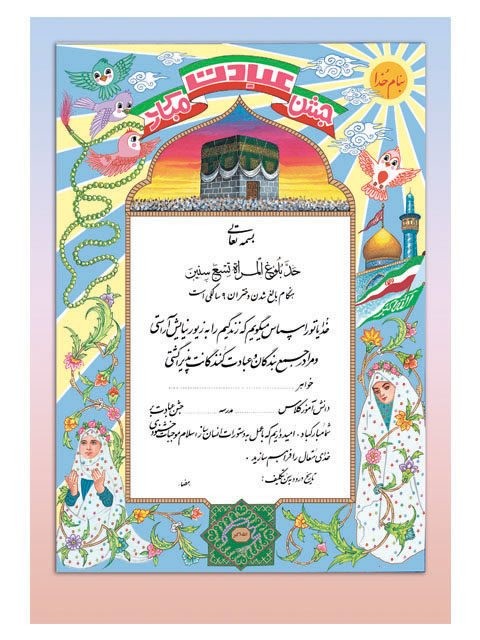 بنام خدا
جشن عبادت مبارک
بسمه تعالی
حد بلوغ المرأة تسع سنین
هنگام بالغ شدن دختران ۹ سالگی است
خدایا تو را سپاس میگویم که زندگیم را به زیور نیایش آراستی
و مرا در جمع بندگان و عبادت کنندگانت پذیرا گشتی
خواهر
دانش آموز کلاس مدرسه جشن عبادت
شما مبارکباد. امیدواریم که با عمل به دستورات انسان ساز اسلام موجبات خشنودی
خدای متعال را فراهم سازید.
تاریخ ورود به سن تکلیف: امضاء